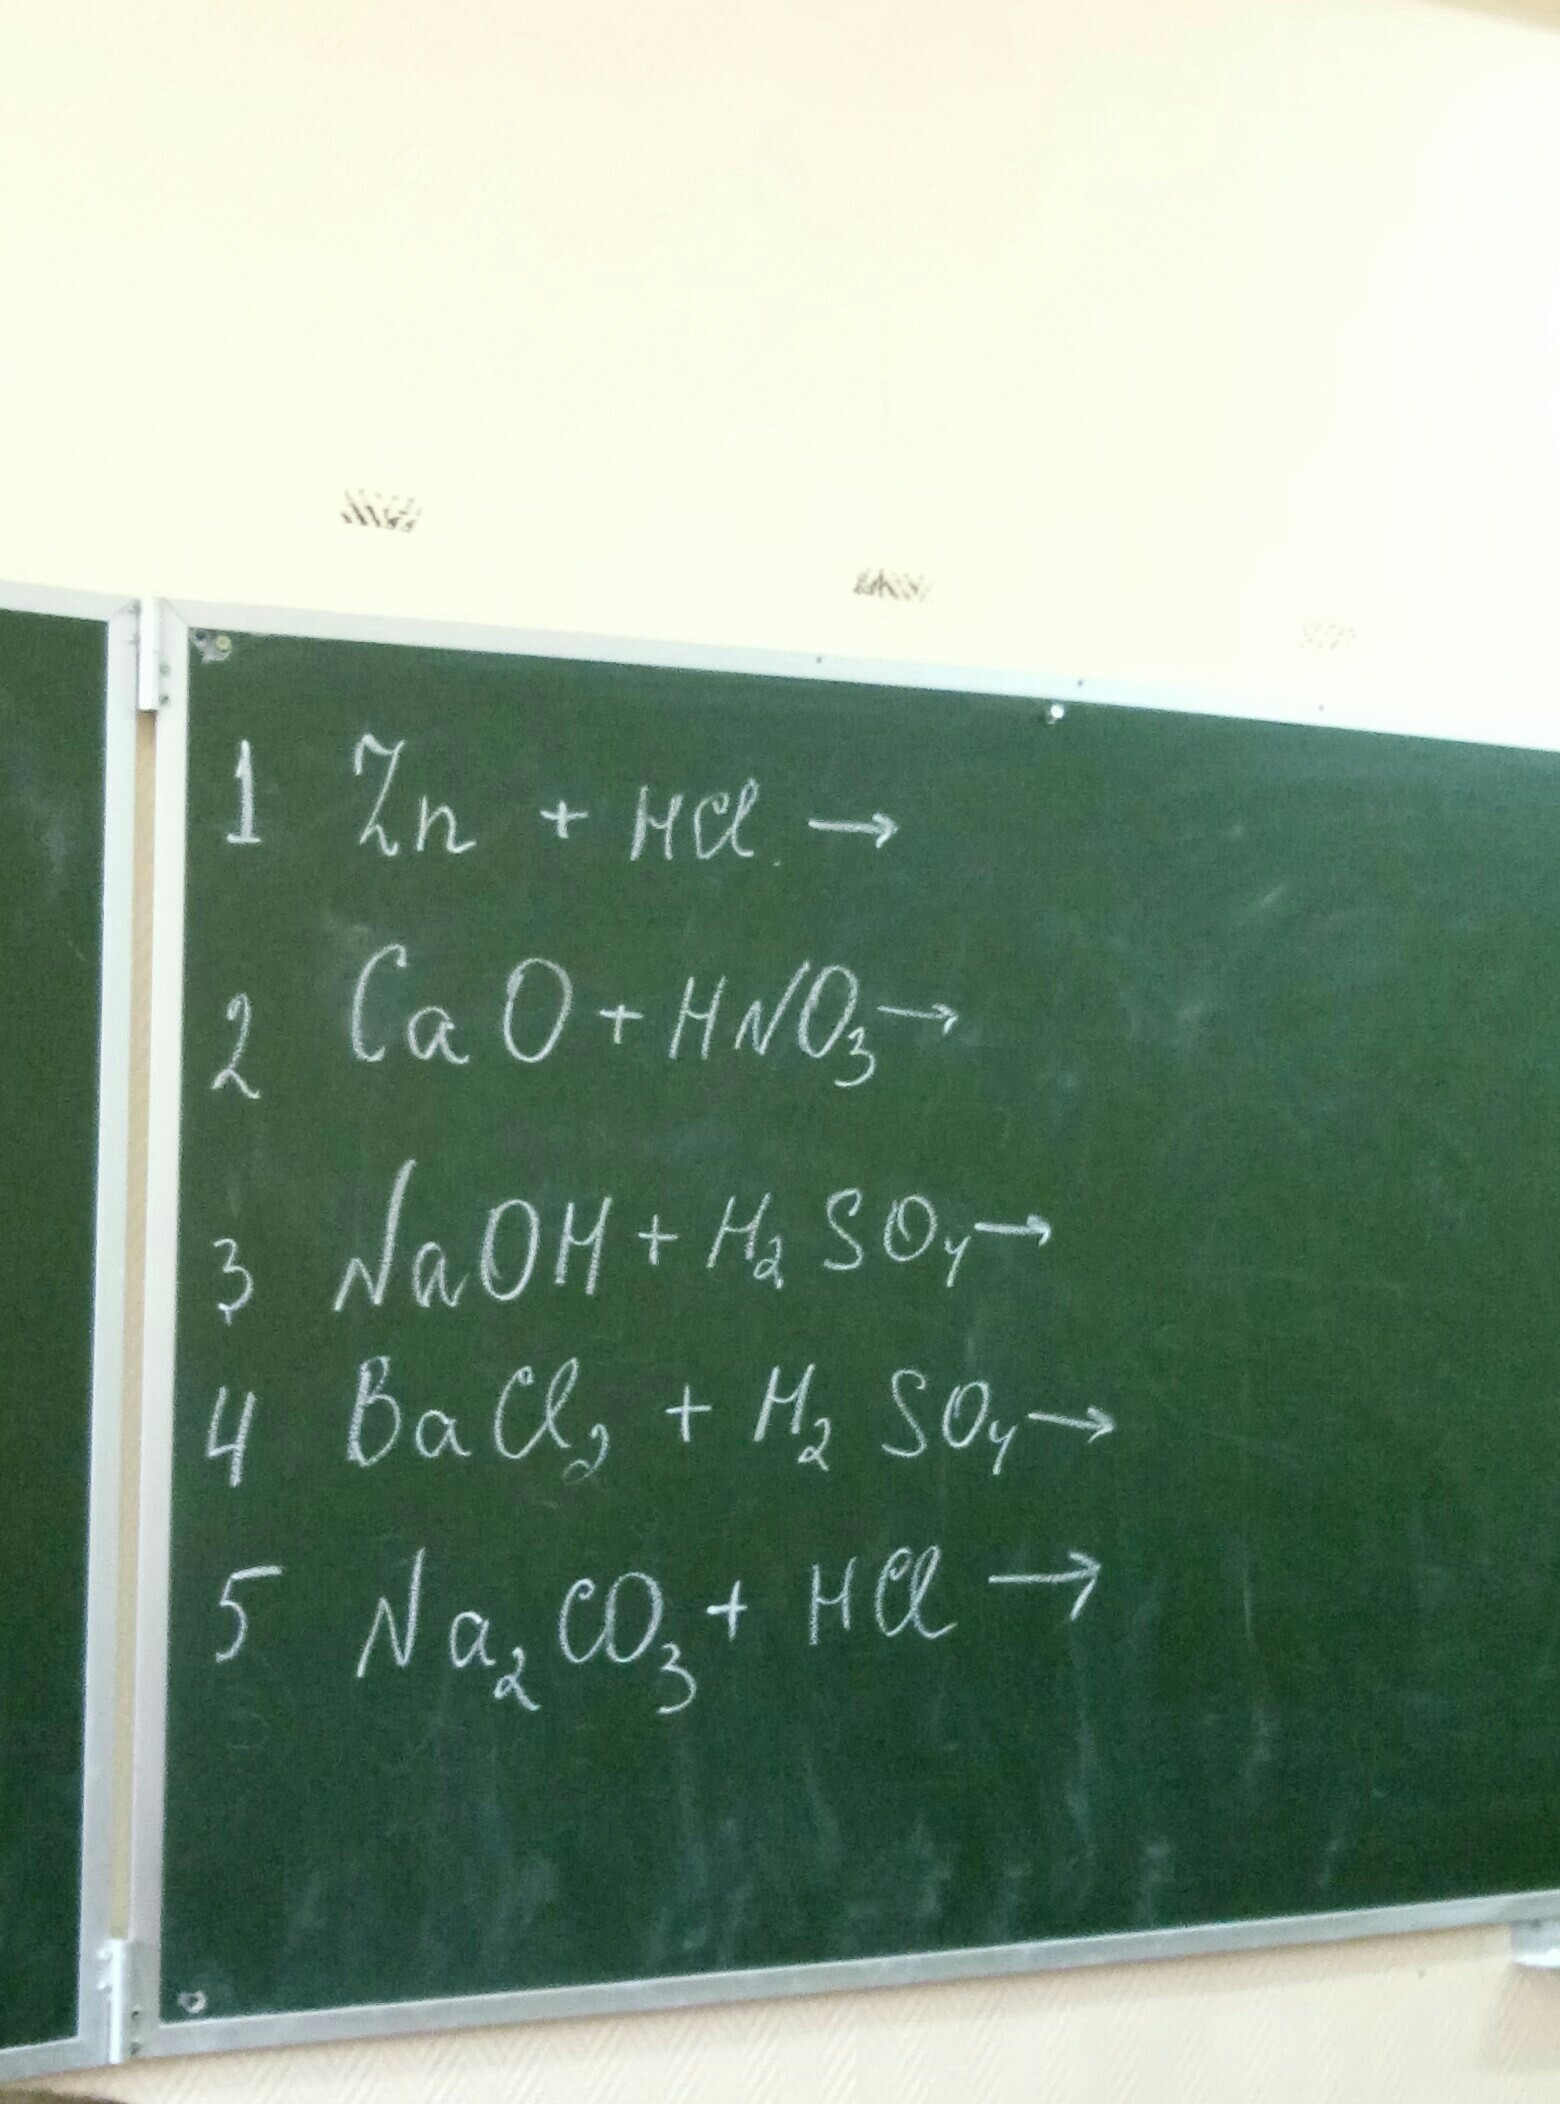 1 Zn + HCl →
2 CaO + HNO₃ →
3 NaOH + H₂SO₄ →
4 BaCl₂ + H₂SO₄ →
5 Na₂CO₃ + HCl →